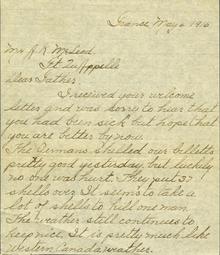 France May 6 1916
Mr A R McLeod
Ft. Qu'Appelle
Dear Father,
I received your welcome
letter and was sorry to hear that
you had been sick but hope that
you are better by now.
The Germans shelled our billets
pretty good yesterday but luckily
no one was hurt. They put 37
shells over. It seems to take a
lot of shells to kill one man.
The weather still continues to
keep nice. It is pretty much like
Western Canada weather.